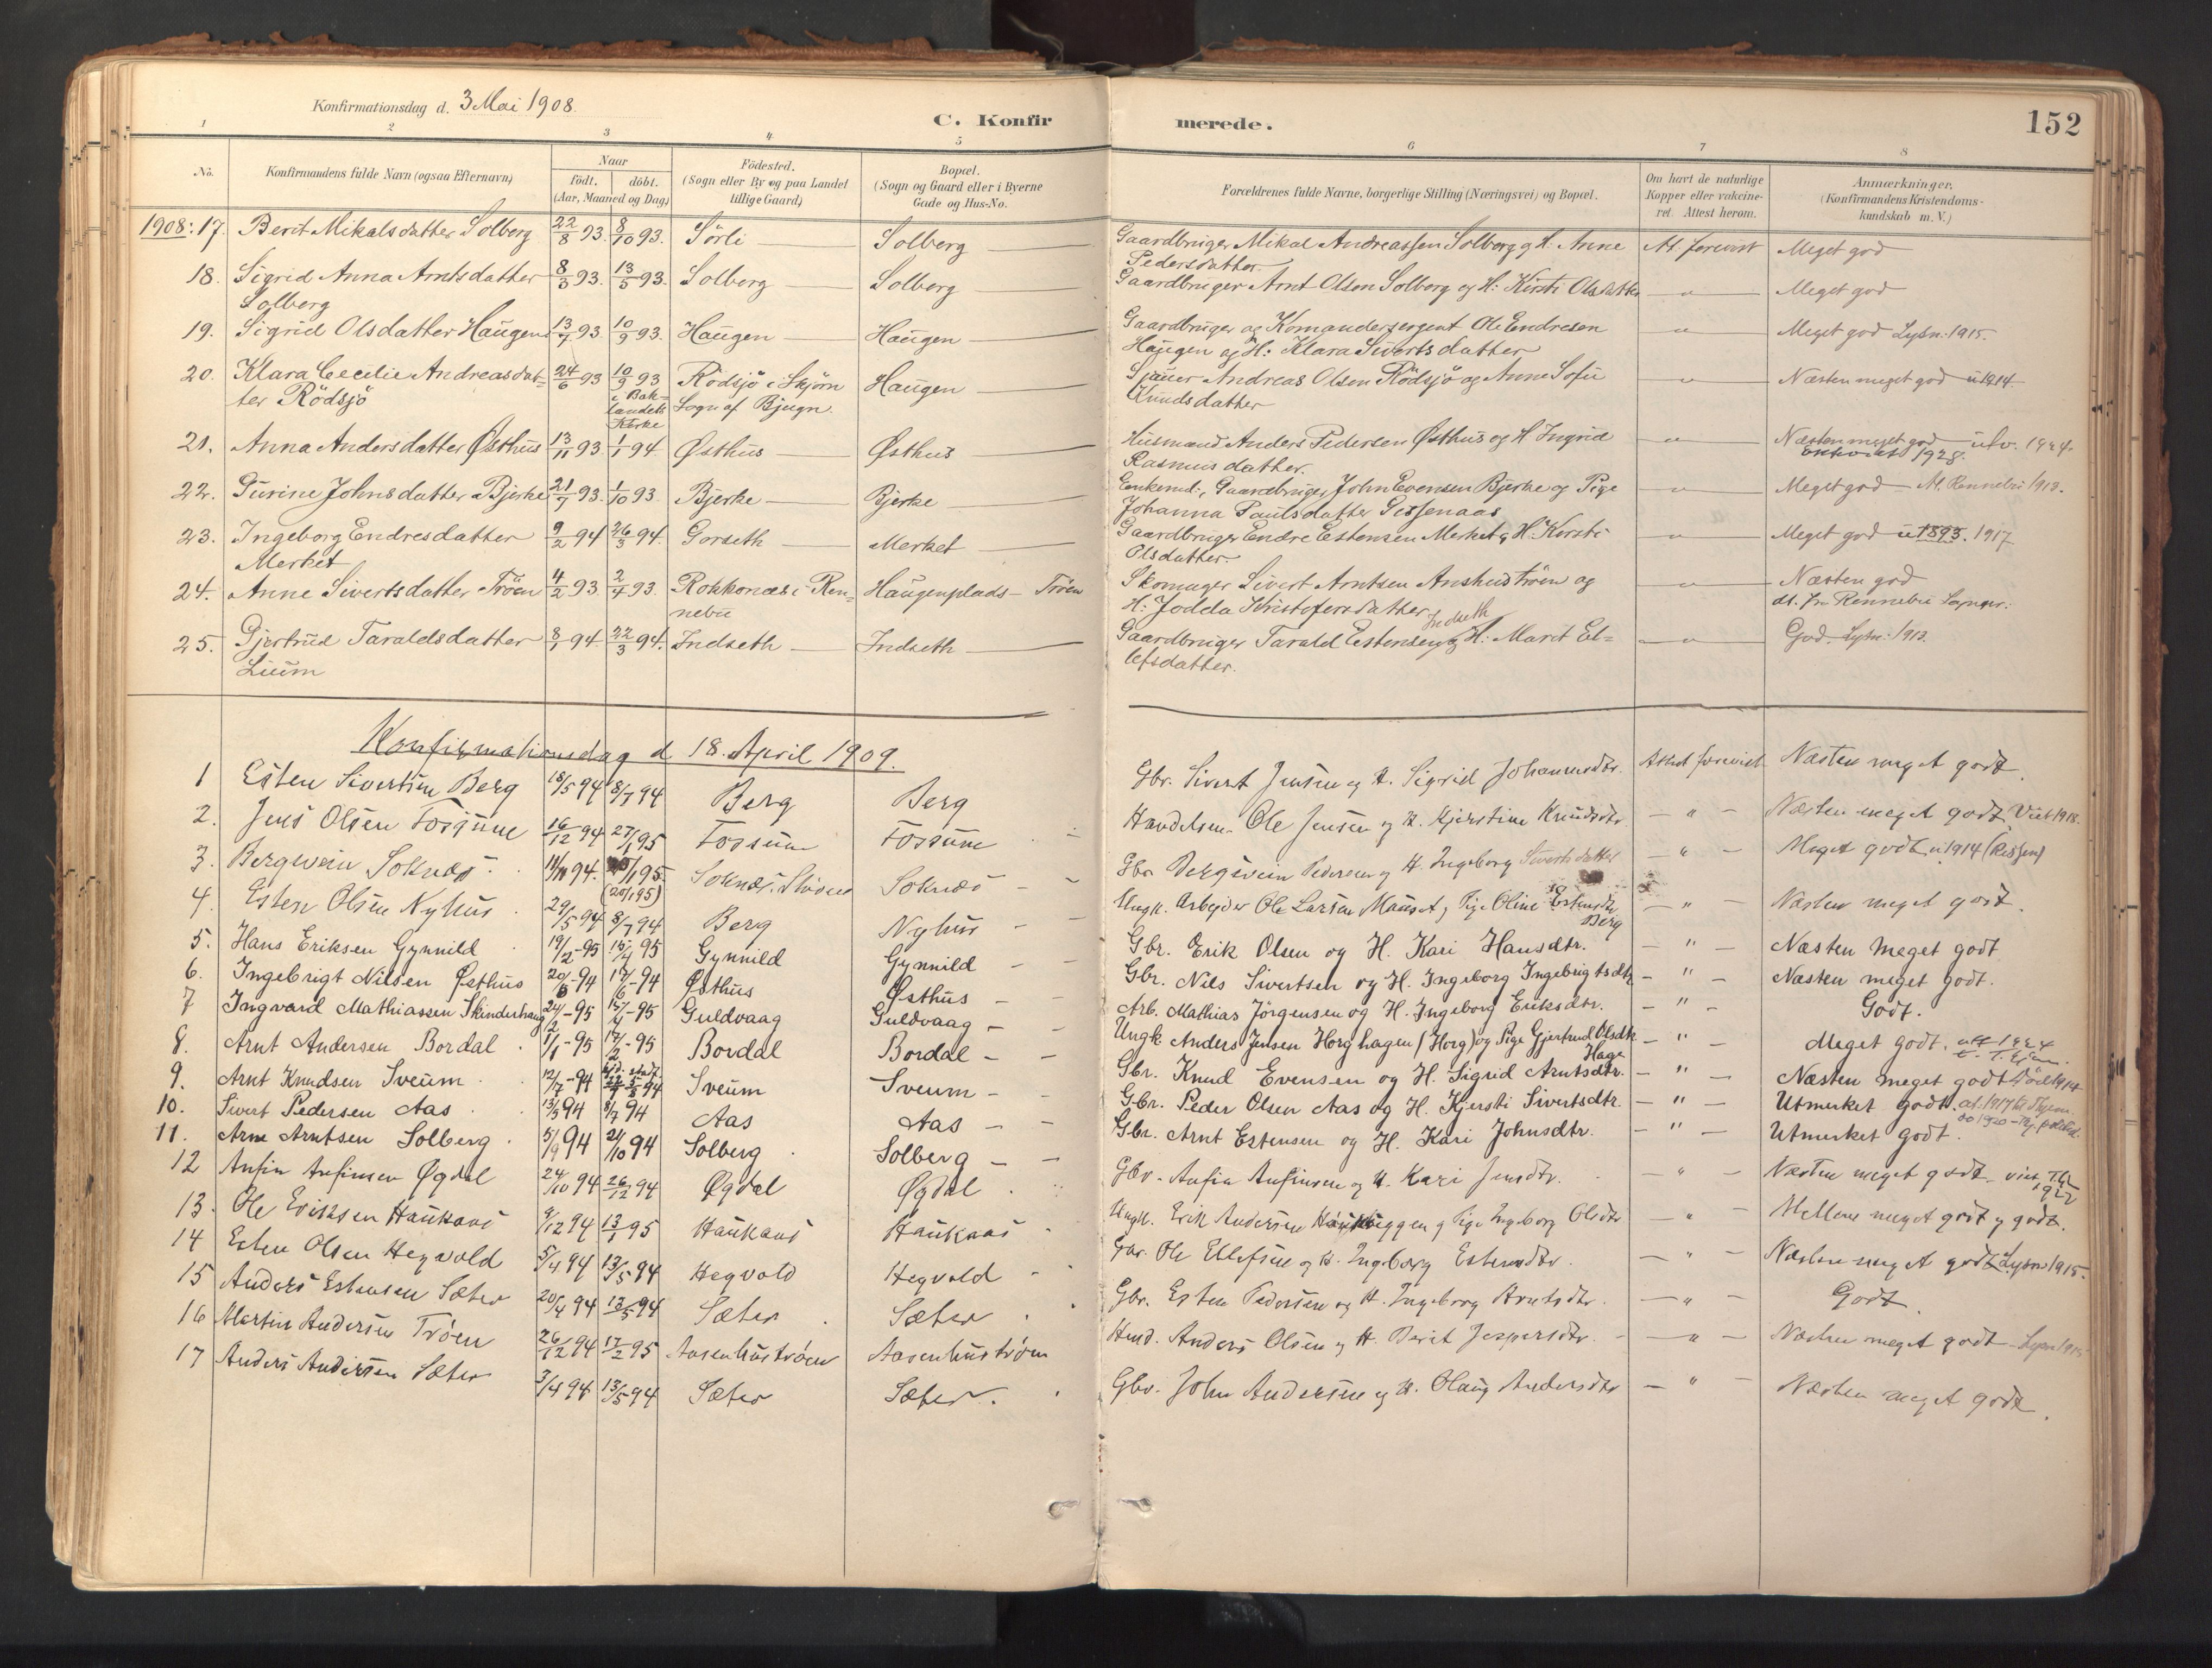 Konfirmationsdag d. 3 Mai 1908.
C. Konfirmerede.
152
1 2 3 4 5 6 7 8
No.
Konfirmandens fulde Navn (ogsaa Efternavn)
Naar
født. døbt.
(Aar, Maaned og Dag)
Födested.
(Sogn eller By og paa Landet
tillige Gaard)
Bopæl.
(Sogn og Gaard eller i Byerne
Gade og Hus-No.
Forældrenes fulde Navne, borgerlige Stilling (Næringsvei) og Bopæl.
Om havt de naturlige
Kopper eller vakcine-
ret. Attest herom.
Anmærkninger.
(Konfirmandens Kristendoms-
kundskab m. V.)
1908: 17. Berit Mikalsdatter Solberg 22/8 93. 8/10 93. Sörli Solberg Gaardbruger Mikal Andreassen Solberg og H. Anne At. forevist Meget god
Pedersdatter.
18. Sigrid Anna Arntsdatter 8/3 93. 13/5 93. Solberg Solberg Gaardbruger Arnt Olsen Solberg og H: Kirsti Olsdatter " Meget god
Solberg
19. Sigrid Olsdatter Haugen 13/7 93. 10/9 93. Haugen Haugen Gaardbruger og Komandersergent Ole Endresen " Meget god Lysn. 1915.
Haugen og H: Klara Sivertsdatter
20. Klara Cecilie Andreasdat- 24/6 93 10/9 93 Rödsjö i Skjörn Haugen Andreas Olsen Rödsjö og Anne Sofie " Næsten meget god u 1914
ter Rödsjö i Bak- Sogn af Bjugn. Knudsdatter
landets
Kirke
21. Anna Andersdatter Østhus 13/11 93. 1/1 94 Østhus Østhus Husmand Anders Pedersen Østhus og H Ingrid " Næsten meget god utv. 1924.
Rasmusdatter. 1928.
22. Gurine Johnsdatter Bjerke 21/7 93. 1/10 93. Bjerke Bjerke Enkemd., Gaardbruger John Evensen Bjerke og Pige " Meget god At. Rennebu 1913.
Johanna Paulsdatter
23. Ingeborg Endresdatter 9/2 94 26/3 94. Gorseth Merket Gaardbruger Endre Estensen Merket og H: Kirsti " Meget god u 1893. 1917
Merket Olsdatter.
24. Anne Sivertsdatter Tröen 4/2 93. 2/4 93. Rokkones i Ren- Haugenplads - Tröen Skomager Sivert Arntsen Anshuströen og " Næsten god
nebu H: Jodda Kristofersdatter dt. fra Rennebu
25. Gjertrud Taraldsdatter 8/1 94. 22/3 94. Indseth Indseth Gaardbruger Tarald Estensen Indseth og H: Marit El- " God. Lysn. 1913.
Lium lefsdatter.
Konfirmationsdag d 18. April 1909.
1 Esten Sivertsen Berg 18/5 94 8/7 94 Berg Berg Gbr. Sivert Jensen og H. Sigrid Johannesdtr. Attest forevist Næsten meget godt.
2. Jens Olsen Fossum 16/12 94 27/1 95 Fossum Fossum Handelsm. Ole Jensen og H. Kjerstine Knudsdtr. " Næsten meget godt Viet 1918.
3. Bergsvein Soknæs. 14/11 94. 20/1 95. (20/1 95) Soknæs, Stören Soknæs Gbr Bergsvein Pedersen og H. Ingeborg Sivertsdatter " Meget godt u 1914 (Rissen)
4. Esten Olsen Nyhus 29/5 94 8/7 94 Berg Nyhus Ungk. Arbeyder Ole Larsen Mauset, Pige Oline Estensdtr. " Næsten meget godt.
Berg
5. Hans Eriksen Gynnild 19/2-95 15/4 95 Gynnild Gynnild Gbr. Erik Olsen og H. Kari Hansdtr. " Næsten meget godt
6. Ingebrigt Nilsen Østhus 20/5-94 17/6-94 Østhus Østhus Gbr. Nils Sivertsen og H. Ingeborg Ingebrigtsdtr. " Næsten meget godt.
7 Ingvard Mathiassen Skinderhaug 24/2-95 15/4-95 Guldvaag Guldvaag Arb. Mathias Jörgensen og H. Ingeborg Eriksdtr. " Godt.
8. Arnt Andersen Bordal 1/1-95 17/2-95 Bordal Bordal Ungk. Anders Jensen Horghagen (Horg) og Pige Gjertrud Olsdtr. " Meget godt. utt 1924
Hage
9. Arnt Knudsen Sveum 12/7-94 Sveum Sveum Gbr. Knud Evensen og H. Sigrid Arntsdtr. " Næsten meget godt Död 1914
10. Sivert Pedersen Aas 13/5 94 8/7 94 Aas Aas Gbr. Peder Olsen Aas og H. Kjersti Sivertsdtr. " Utmerket godt. at. 1917
11. Arne Arntsen Solberg 5/9 94 21/10 94 Solberg Solberg Gbr. Arnt Estensen og H. Kari Johnsdtr. " Utmerket godt.
12 Anfin Anfinsen Øgdal 24/10 94 26/12 94 Øgdal Øgdal Gbr. Anfin Anfinsen og H. Kari Jensdtr. " Næsten meget godt
13. Ole Eriksen Haukaas 9/12 94 13/1 95 Haukaas Haukaas Ungk. Erik Andersen og Pige Ingeborg Olsdtr " Mellem meget godt og godt.
14 Esten Olsen Hegvold 5/4 94 13/5 94 Hegvold Hegvold Gbr. Ole Ellefsen og H. Ingeborg Estensdtr. " Næsten meget godt Lysn 1915.
15 Anders Estensen Sæter 20/4 94 13/5 94 Sæter Sæter Gbr. Esten Pedersen og H. Ingeborg Arntsdtr. " Godt.
16 Martin Andersen Tröen 26/12 94 17/2 95 Aasenhuströen Aasenhuströen Hmd. Anders Olsen og H. Berit Jespersdtr. " Næsten meget godt - Lysn 1915
17 Anders Andersen Sæter 3/4 94 13/5 94 Sæter Sæter. Gbr. John Andersen og H. Olaug Andersdtr " Næsten meget godt.